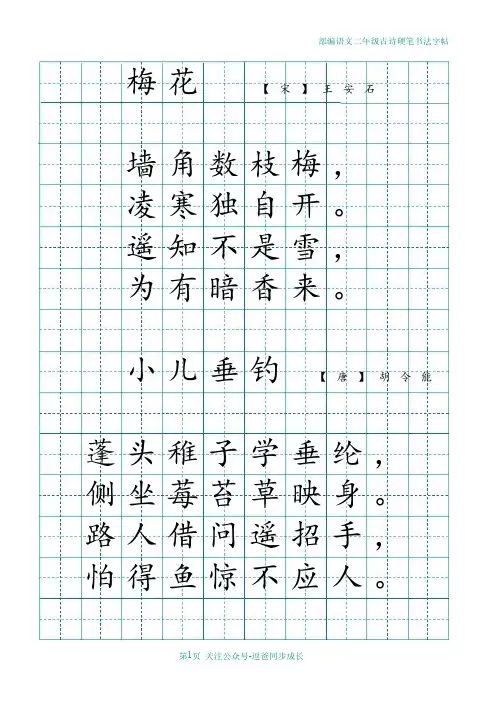 部编语文二年级古诗硬笔书法字帖
梅花 【宋】王安石
墙角数枝梅，
凌寒独自开。
遥知不是雪，
为有暗香来。
小儿垂钓 【唐】胡令能
蓬头稚子学垂纶，
侧坐莓苔草映身。
路人借问遥招手，
怕得鱼惊不应人。
第1页 关注公众号-逗爸同步成长